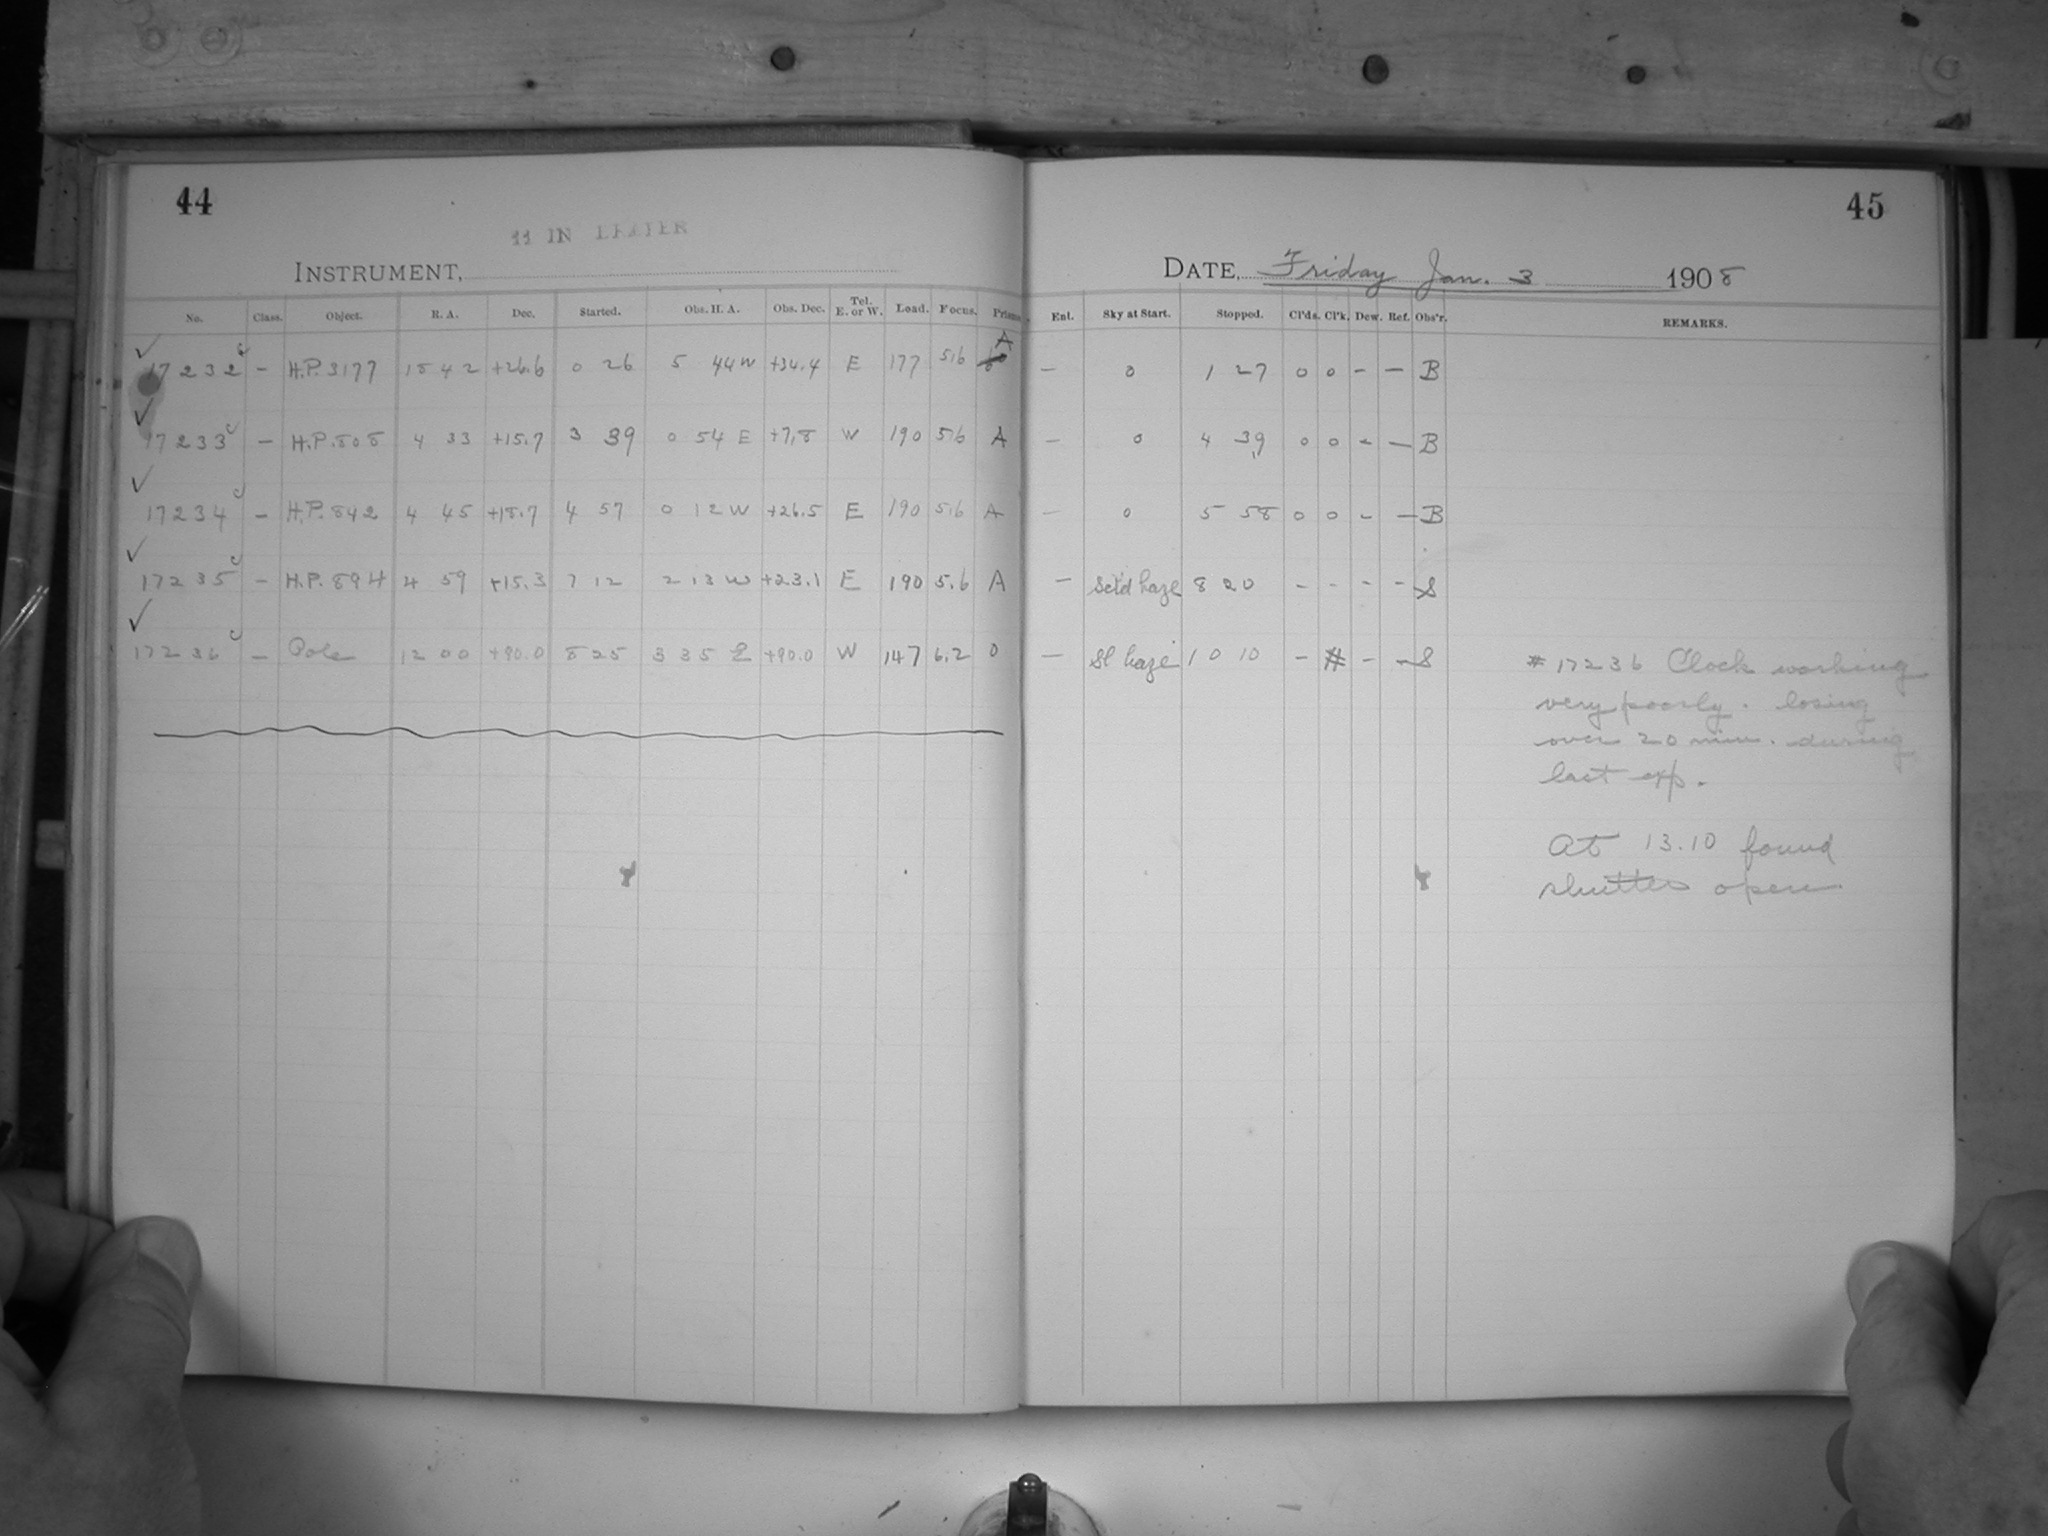 44
11 IN DRAPER
INSTRUMENT,
No. Class. Object. R. A. Dec. Started. Obs. H. A. Obs. Dec. Tel. E. or W. Load. Focus. Prisms.
17232 – H.P. 3177 18 42 +26.6 0 26 5 44 W +34.4 E 177 5.6 A
17233 – H.P. 808 4 33 +15.7 3 39 0 54 E +7.8 W 190 5.6 A
17234 – H.P. 842 4 45 +18.7 4 57 0 12 W +26.5 E 190 5.6 A
17235 – H.P. 894 4 59 +15.3 7 12 2 13 W +23.1 E 190 5.6 A
17236 – Pole 12 00 +90.0 8 25 3 35 E +90.0 W 147 6.2 0
45
DATE, Friday Jan. 3 1908
Ent. Sky at Start. Stopped. Cl'ds. Cl'k. Dew. Ref. Obs'r. REMARKS.
– 0 1 27 0 0 – – B
– 0 4 39 0 0 – – B
– 0 5 58 0 0 – – B
– Sctd haze 8 20 – – – – S
– Sl haze 10 10 – # – – S
# 17236 Clock working
very poorly. losing
over 20 min. during
last exp.
At 13.10 found
shutter open